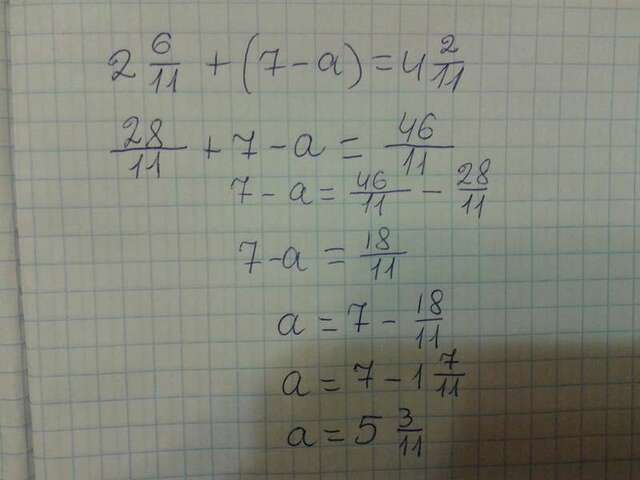 2 6/11 + (7 - a) = 4 2/11
28/11 + 7 - a = 46/11
7 - a = 46/11 - 28/11
7 - a = 18/11
a = 7 - 18/11
a = 7 - 1 7/11
a = 5 3/11